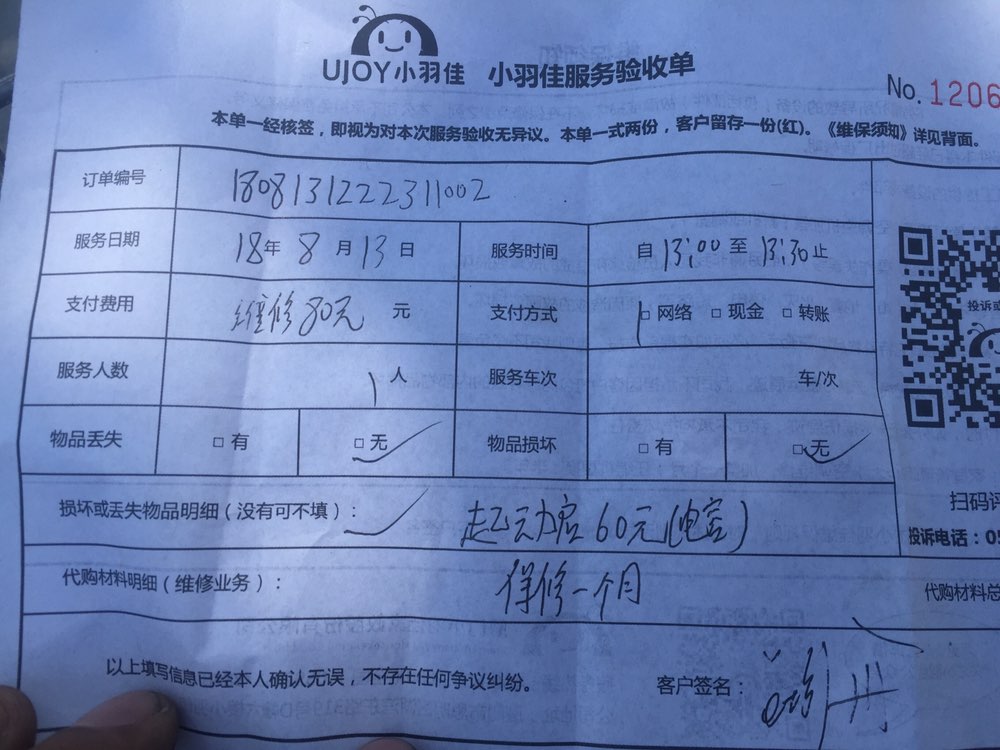 UJOY小羽佳 小羽佳服务验收单
No. 1206
本单一经核签，即视为对本次服务验收无异议。本单一式两份，客户留存一份(红)。《维保须知》详见背面。
订单编号 1808131222311002
服务日期 18年 8 月 13 日 服务时间 自 13:00 至 13:30 止
支付费用 维修80元 元 支付方式 □ 网络 □ 现金 □ 转账
服务人数 1 人 服务车次 车/次
物品丢失 □ 有 □ 无 物品损坏 □ 有 □ 无
投诉或
损坏或丢失物品明细（没有可不填）： 60元
扫码评
投诉电话：05
代购材料明细（维修业务）： 保修一个月
代购材料总
以上填写信息已经本人确认无误，不存在任何争议纠纷。 客户签名：